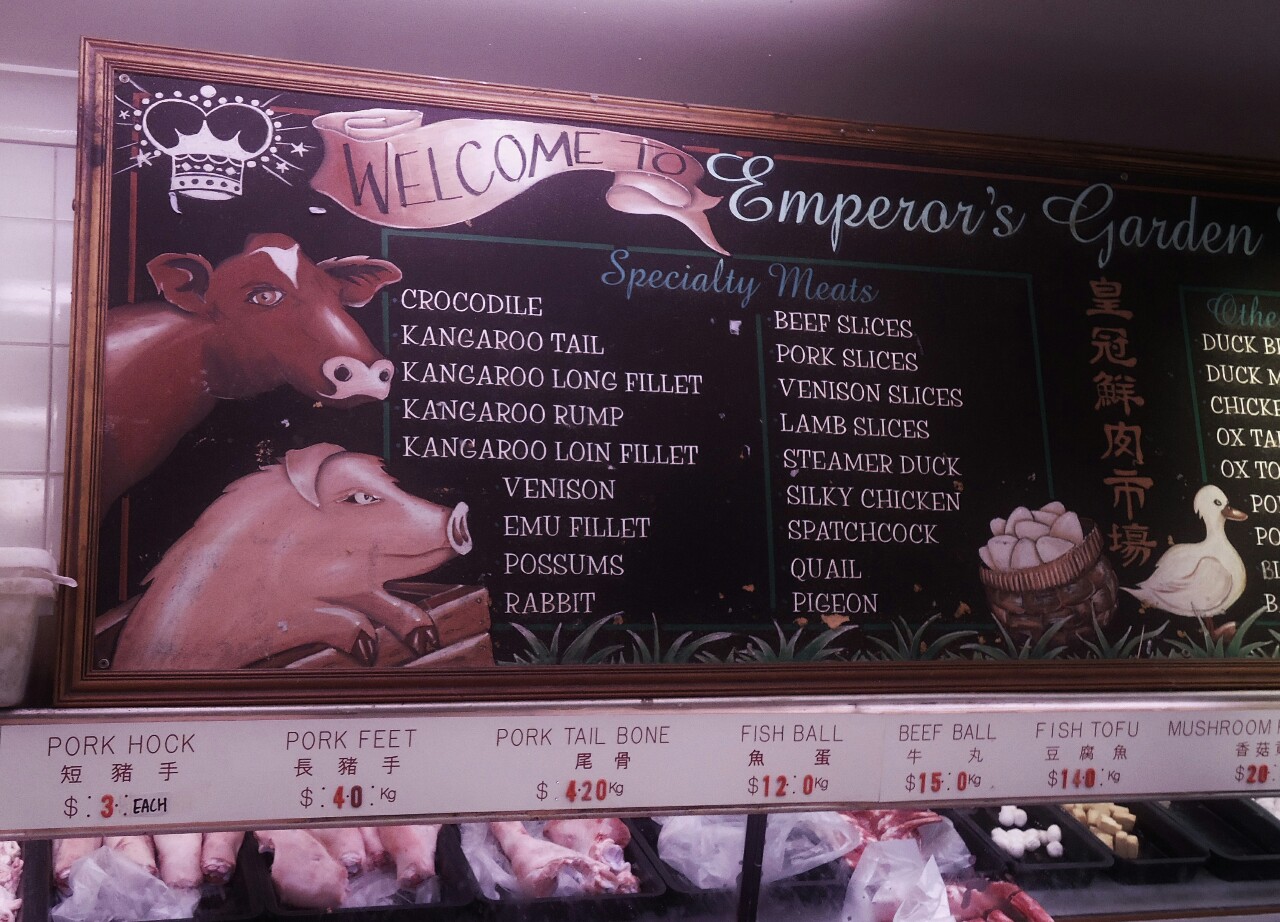 WELCOME TO
Emperor's Garden
Specialty Meats
CROCODILE
KANGAROO TAIL
KANGAROO LONG FILLET
KANGAROO RUMP
KANGAROO LOIN FILLET
VENISON
EMU FILLET
POSSUMS
RABBIT
BEEF SLICES
PORK SLICES
VENISON SLICES
LAMB SLICES
STEAMER DUCK
SILKY CHICKEN
SPATCHCOCK
QUAIL
PIGEON
皇冠鮮肉市場
DUCK
DUCK
OX
OX
PORK HOCK
短豬手
$: 3 EACH
PORK FEET
長豬手
$: 4.0 Kg
PORK TAIL BONE
尾骨
$ 4.20 Kg
FISH BALL
魚蛋
$12.0 Kg
BEEF BALL
牛丸
$15.0 Kg
FISH TOFU
豆腐魚
$14.0 Kg
MUSHROOM
香菇
$20